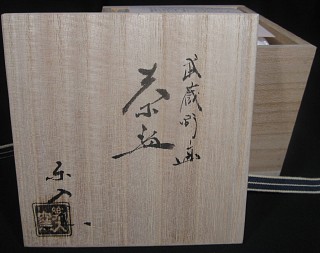 武蔵野画
茶碗
楽入